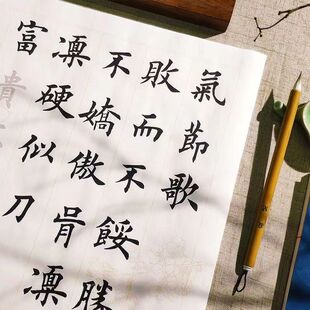 氣節歌
敗而不餒勝
不嬌傲骨凛
凛硬似刀
富貴